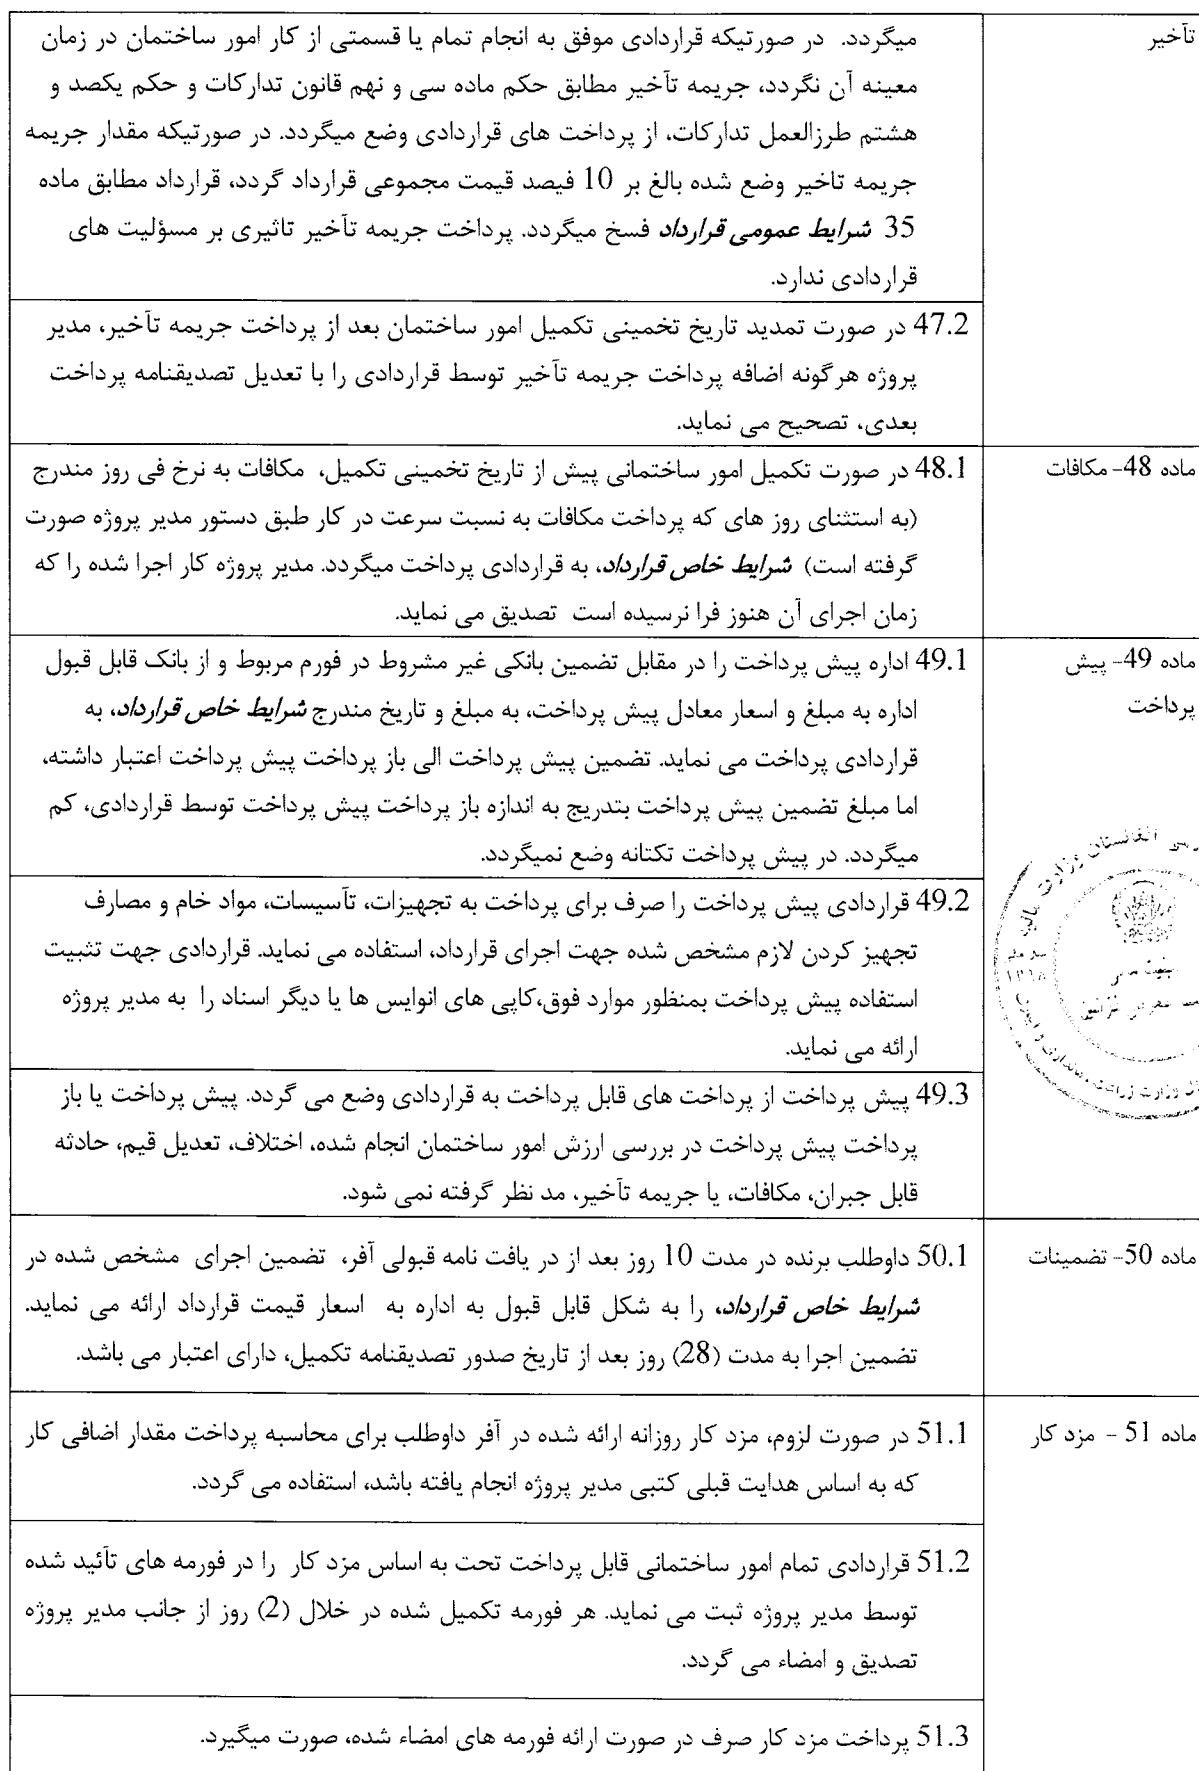 تأخیر
میگردد. در صورتیکه قراردادی موفق به انجام تمام یا قسمتی از کار امور ساختمان در زمان
معینه آن نگردد، جریمه تأخیر مطابق حکم ماده سی و نهم قانون تدارکات و حکم یکصد و
هشتم طرزالعمل تدارکات، از پرداخت های قراردادی وضع میگردد. در صورتیکه مقدار جریمه
جریمه تاخیر وضع شده بالغ بر 10 فیصد قیمت مجموعی قرارداد گردد، قرارداد مطابق ماده
35 شرایط عمومی قرارداد فسخ میگردد. پرداخت جریمه تأخیر تاثیری بر مسؤلیت های
قراردادی ندارد.
47.2 در صورت تمدید تاریخ تخمینی تکمیل امور ساختمان بعد از پرداخت جریمه تأخیر، مدیر
پروژه هرگونه اضافه پرداخت جریمه تأخیر توسط قراردادی را با تعدیل تصدیقنامه پرداخت
بعدی، تصحیح می نماید.
ماده 48- مکافات
48.1 در صورت تکمیل امور ساختمانی پیش از تاریخ تخمینی تکمیل، مکافات به نرخ فی روز مندرج
(به استثنای روز های که پرداخت مکافات به نسبت سرعت در کار طبق دستور مدیر پروژه صورت
گرفته است) شرایط خاص قرارداد، به قراردادی پرداخت میگردد. مدیر پروژه کار اجرا شده را که
زمان اجرای آن هنوز فرا نرسیده است تصدیق می نماید.
ماده 49- پیش
پرداخت
49.1 اداره پیش پرداخت را در مقابل تضمین بانکی غیر مشروط در فورم مربوط و از بانک قابل قبول
اداره به مبلغ و اسعار معادل پیش پرداخت، به مبلغ و تاریخ مندرج شرایط خاص قرارداد، به
قراردادی پرداخت می نماید. تضمین پیش پرداخت الی باز پرداخت پیش پرداخت اعتبار داشته،
اما مبلغ تضمین پیش پرداخت بتدریج به اندازه باز پرداخت پیش پرداخت توسط قراردادی، کم
میگردد. در پیش پرداخت تکتانه وضع نمیگردد.
49.2 قراردادی پیش پرداخت را صرف برای پرداخت به تجهیزات، تأسیسات، مواد خام و مصارف
تجهیز کردن لازم مشخص شده جهت اجرای قرارداد، استفاده می نماید. قراردادی جهت تثبیت
استفاده پیش پرداخت بمنظور موارد فوق،کاپی های انوایس ها یا دیگر اسناد را به مدیر پروژه
ارائه می نماید.
49.3 پیش پرداخت از پرداخت های قابل پرداخت به قراردادی وضع می گردد. پیش پرداخت یا باز
پرداخت پیش پرداخت در بررسی ارزش امور ساختمان انجام شده، اختلاف، تعدیل قیم، حادثه
قابل جبران، مکافات، یا جریمه تأخیر، مد نظر گرفته نمی شود.
ماده 50- تضمینات
50.1 داوطلب برنده در مدت 10 روز بعد از در یافت نامه قبولی آفر، تضمین اجرای مشخص شده در
شرایط خاص قرارداد، را به شکل قابل قبول به اداره به اسعار قیمت قرارداد ارائه می نماید.
تضمین اجرا به مدت (28) روز بعد از تاریخ صدور تصدیقنامه تکمیل، دارای اعتبار می باشد.
ماده 51 - مزد کار
51.1 در صورت لزوم، مزد کار روزانه ارائه شده در آفر داوطلب برای محاسبه پرداخت مقدار اضافی کار
که به اساس هدایت قبلی کتبی مدیر پروژه انجام یافته باشد، استفاده می گردد.
51.2 قراردادی تمام امور ساختمانی قابل پرداخت تحت به اساس مزد کار را در فورمه های تأئید شده
توسط مدیر پروژه ثبت می نماید. هر فورمه تکمیل شده در خلال (2) روز از جانب مدیر پروژه
تصدیق و امضاء می گردد.
51.3 پرداخت مزد کار صرف در صورت ارائه فورمه های امضاء شده، صورت میگیرد.